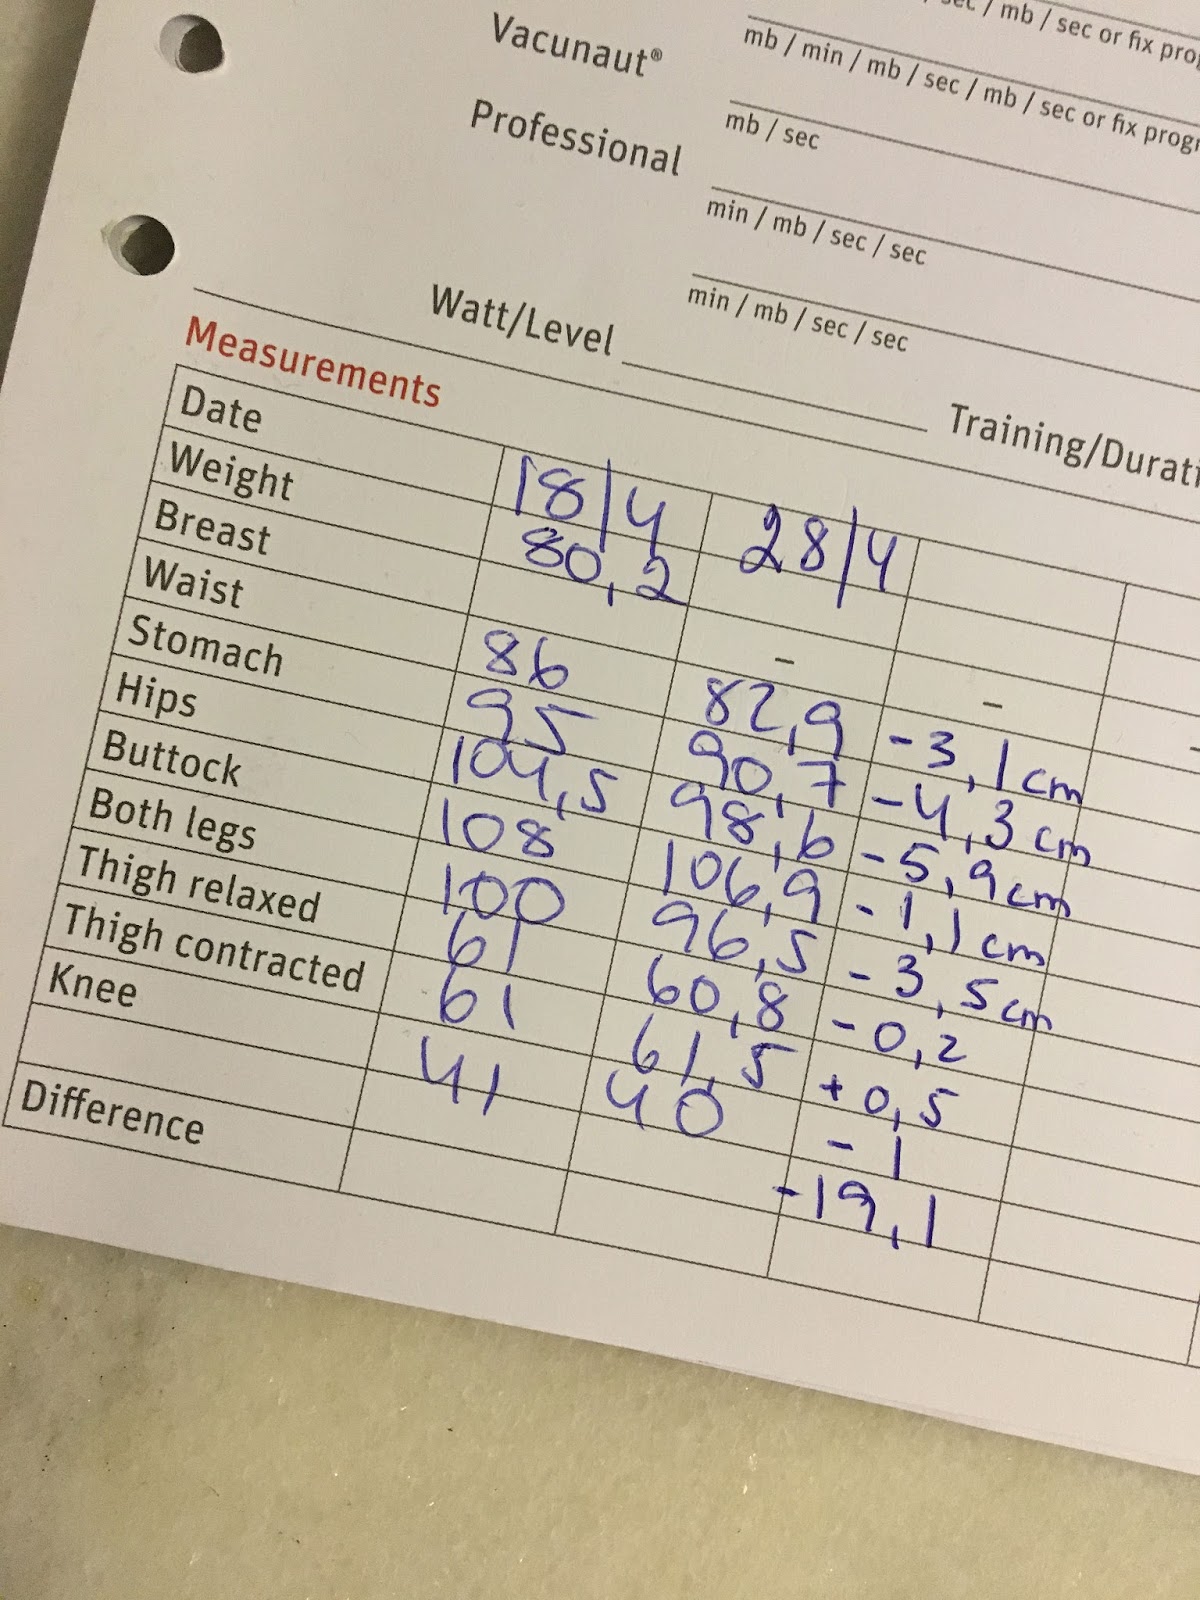 / mb / sec or fix
Vacunaut® mb / min / mb / sec / mb / sec or fix
Professional mb / sec
min / mb / sec / sec
min / mb / sec / sec
Watt/Level Training/Durati
Measurements
Date 18/4 28/4
Weight 80,2
Breast - -
Waist 86 82,9 -3,1cm
Stomach 95 90,7 -4,3cm
Hips 104,5 98,6 -5,9cm
Buttock 108 106,9 -1,1cm
Both legs 100 96,5 -3,5cm
Thigh relaxed 61 60,8 -0,2
Thigh contracted 61 61,5 +0,5
Knee 41 40 -1
-19,1
Difference